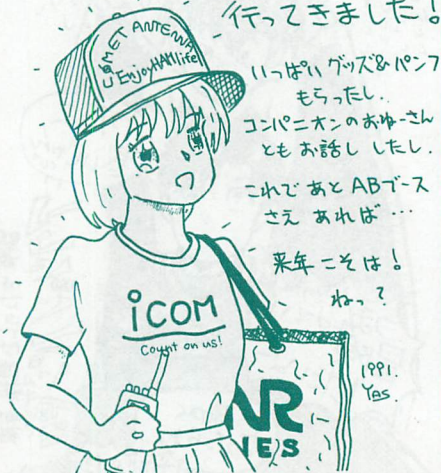 行ってきました!
いっぱい グッズ&パンフ
もらったし.
コンパニオンのおねーさん
とも お話し したし.
これで あと ABブース
さえ あれば…
来年こそは!
ねっ?
1991.
Yas.
COMET ANTENNA
Enjoy HAM life
iCOM
Count on us!
NR
IES